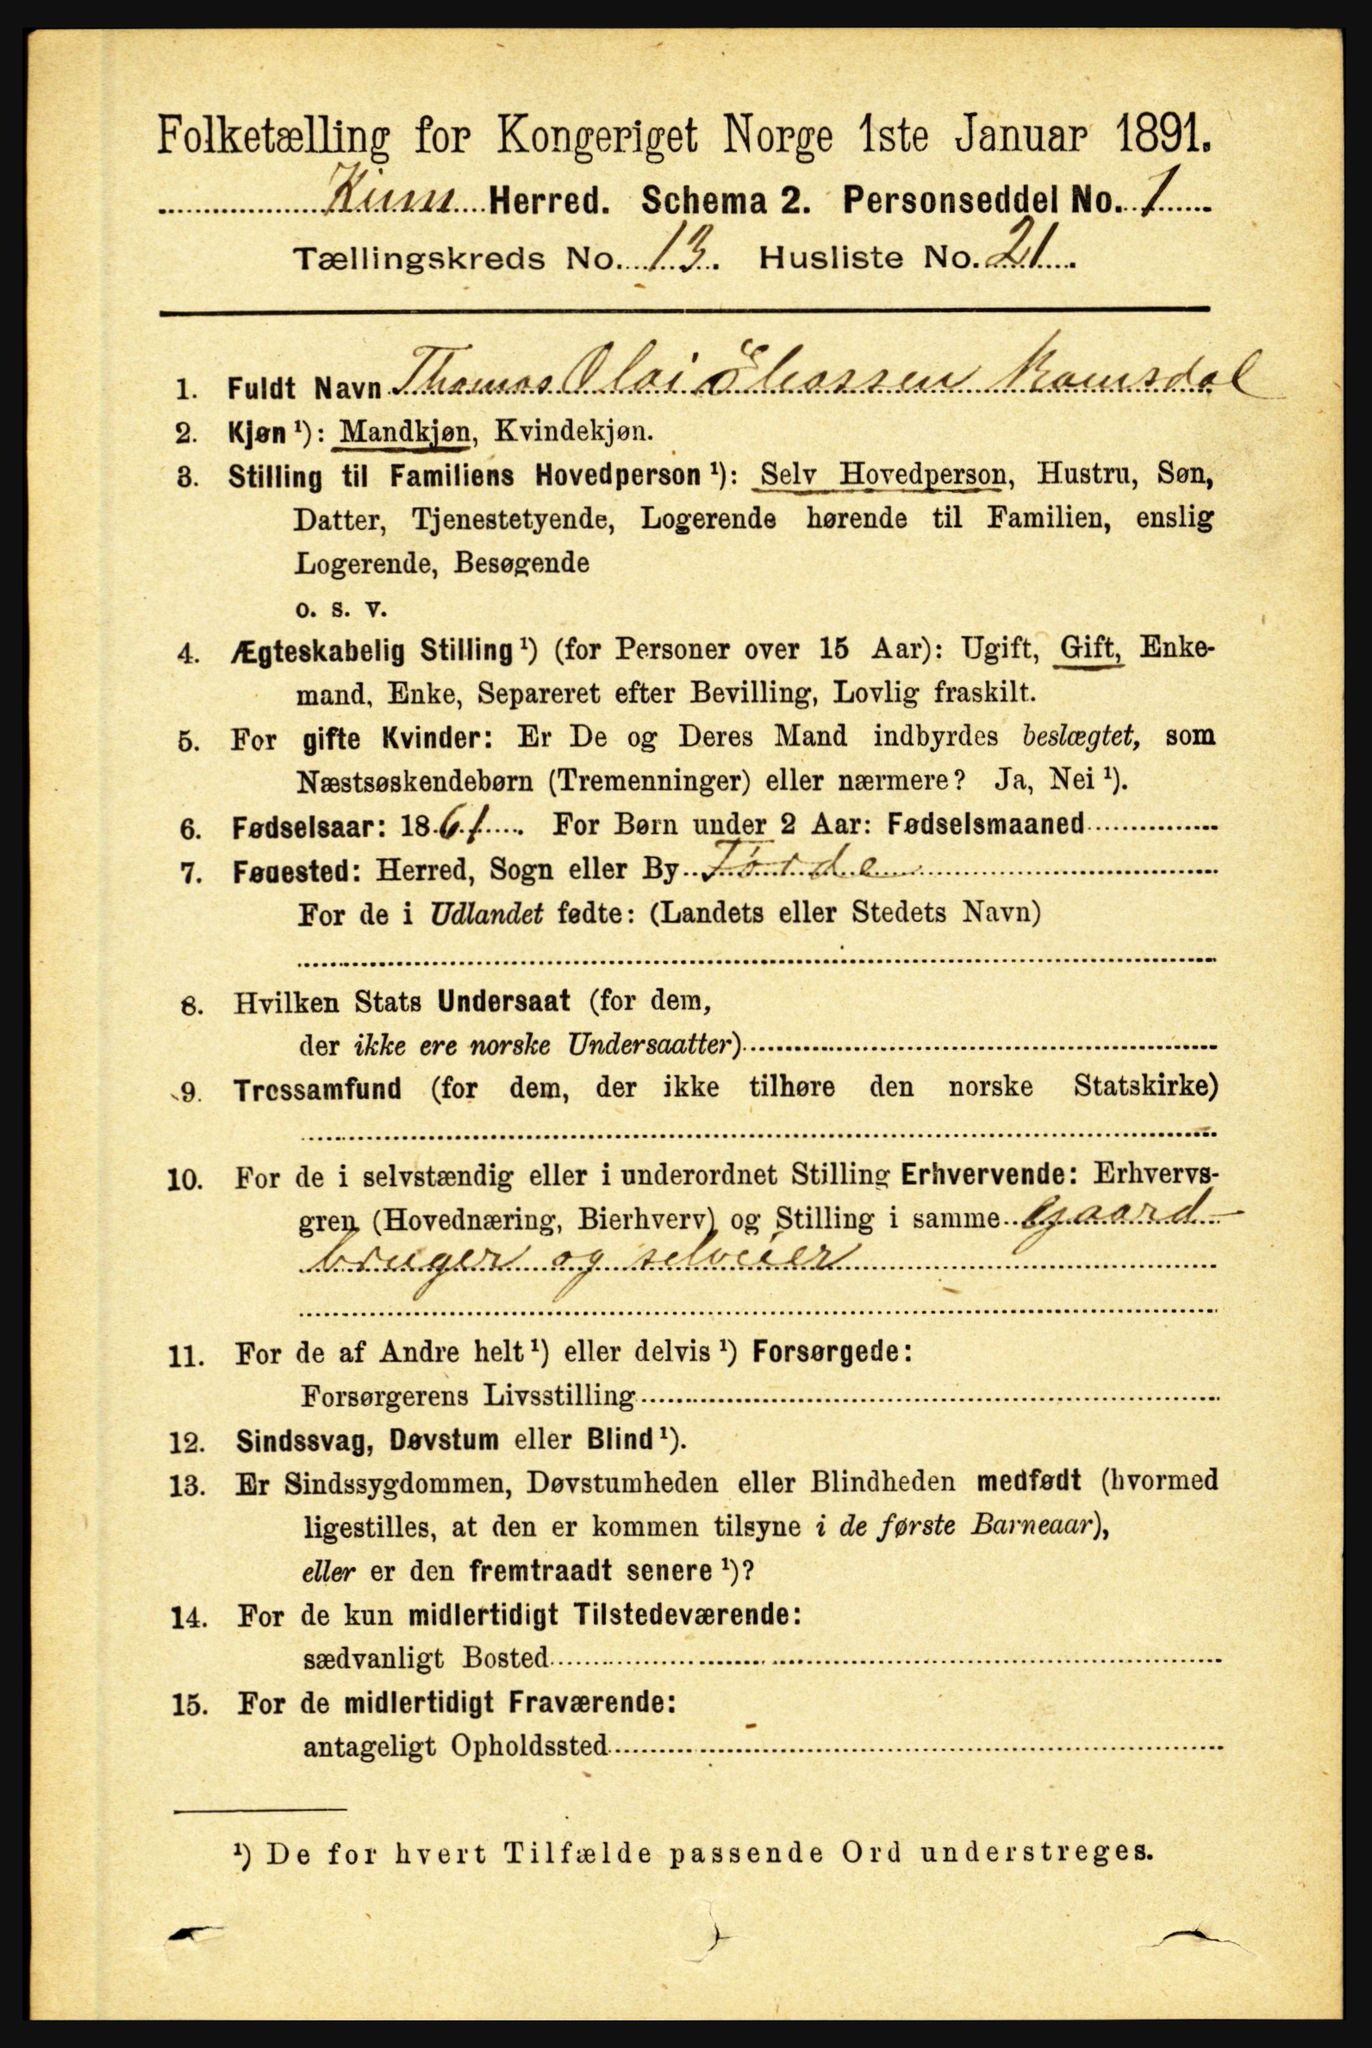 Folketælling for Kongeriget Norge 1ste Januar 1891.
Kinn Herred. Schema 2. Personseddel No. 1
Tællingskreds No. 13. Husliste No. 21.
1. Fuldt Navn Thomas Olai Eliassen Ramsdal
2. Kjøn ¹): Mandkjøn, Kvindekjøn.
3. Stilling til Familiens Hovedperson ¹): Selv Hovedperson, Hustru, Søn,
Datter, Tjenestetyende, Logerende hørende til Familien, enslig
Logerende, Besøgende
o. s. v.
4. Ægteskabelig Stilling ¹) (for Personer over 15 Aar): Ugift, Gift, Enke-
mand, Enke, Separeret efter Bevilling, Lovlig fraskilt.
5. For gifte Kvinder: Er De og Deres Mand indbyrdes beslægtet, som
Næstsøskendebørn (Tremenninger) eller nærmere? Ja, Nei ¹).
6. Fødselsaar: 1861. For Børn under 2 Aar: Fødselsmaaned
7. Fødested: Herred, Sogn eller By Førde
For de i Udlandet fødte: (Landets eller Stedets Navn)
8. Hvilken Stats Undersaat (for dem,
der ikke ere norske Undersaatter)
9. Trossamfund (for dem, der ikke tilhøre den norske Statskirke)
10. For de i selvstændig eller i underordnet Stilling Erhvervende: Erhvervs-
gren (Hovednæring, Bierhverv) og Stilling i samme Gaard-
bruger og selveier
11. For de af Andre helt ¹) eller delvis ¹) Forsørgede:
Forsørgerens Livsstilling
12. Sindssvag, Døvstum eller Blind ¹).
13. Er Sindssygdommen, Døvstumheden eller Blindheden medfødt (hvormed
ligestilles, at den er kommen tilsyne i de første Barneaar),
eller er den fremtraadt senere ¹)?
14. For de kun midlertidigt Tilstedeværende:
sædvanligt Bosted
15. For de midlertidigt Fraværende:
antageligt Opholdssted
¹) De for hvert Tilfælde passende Ord understreges.